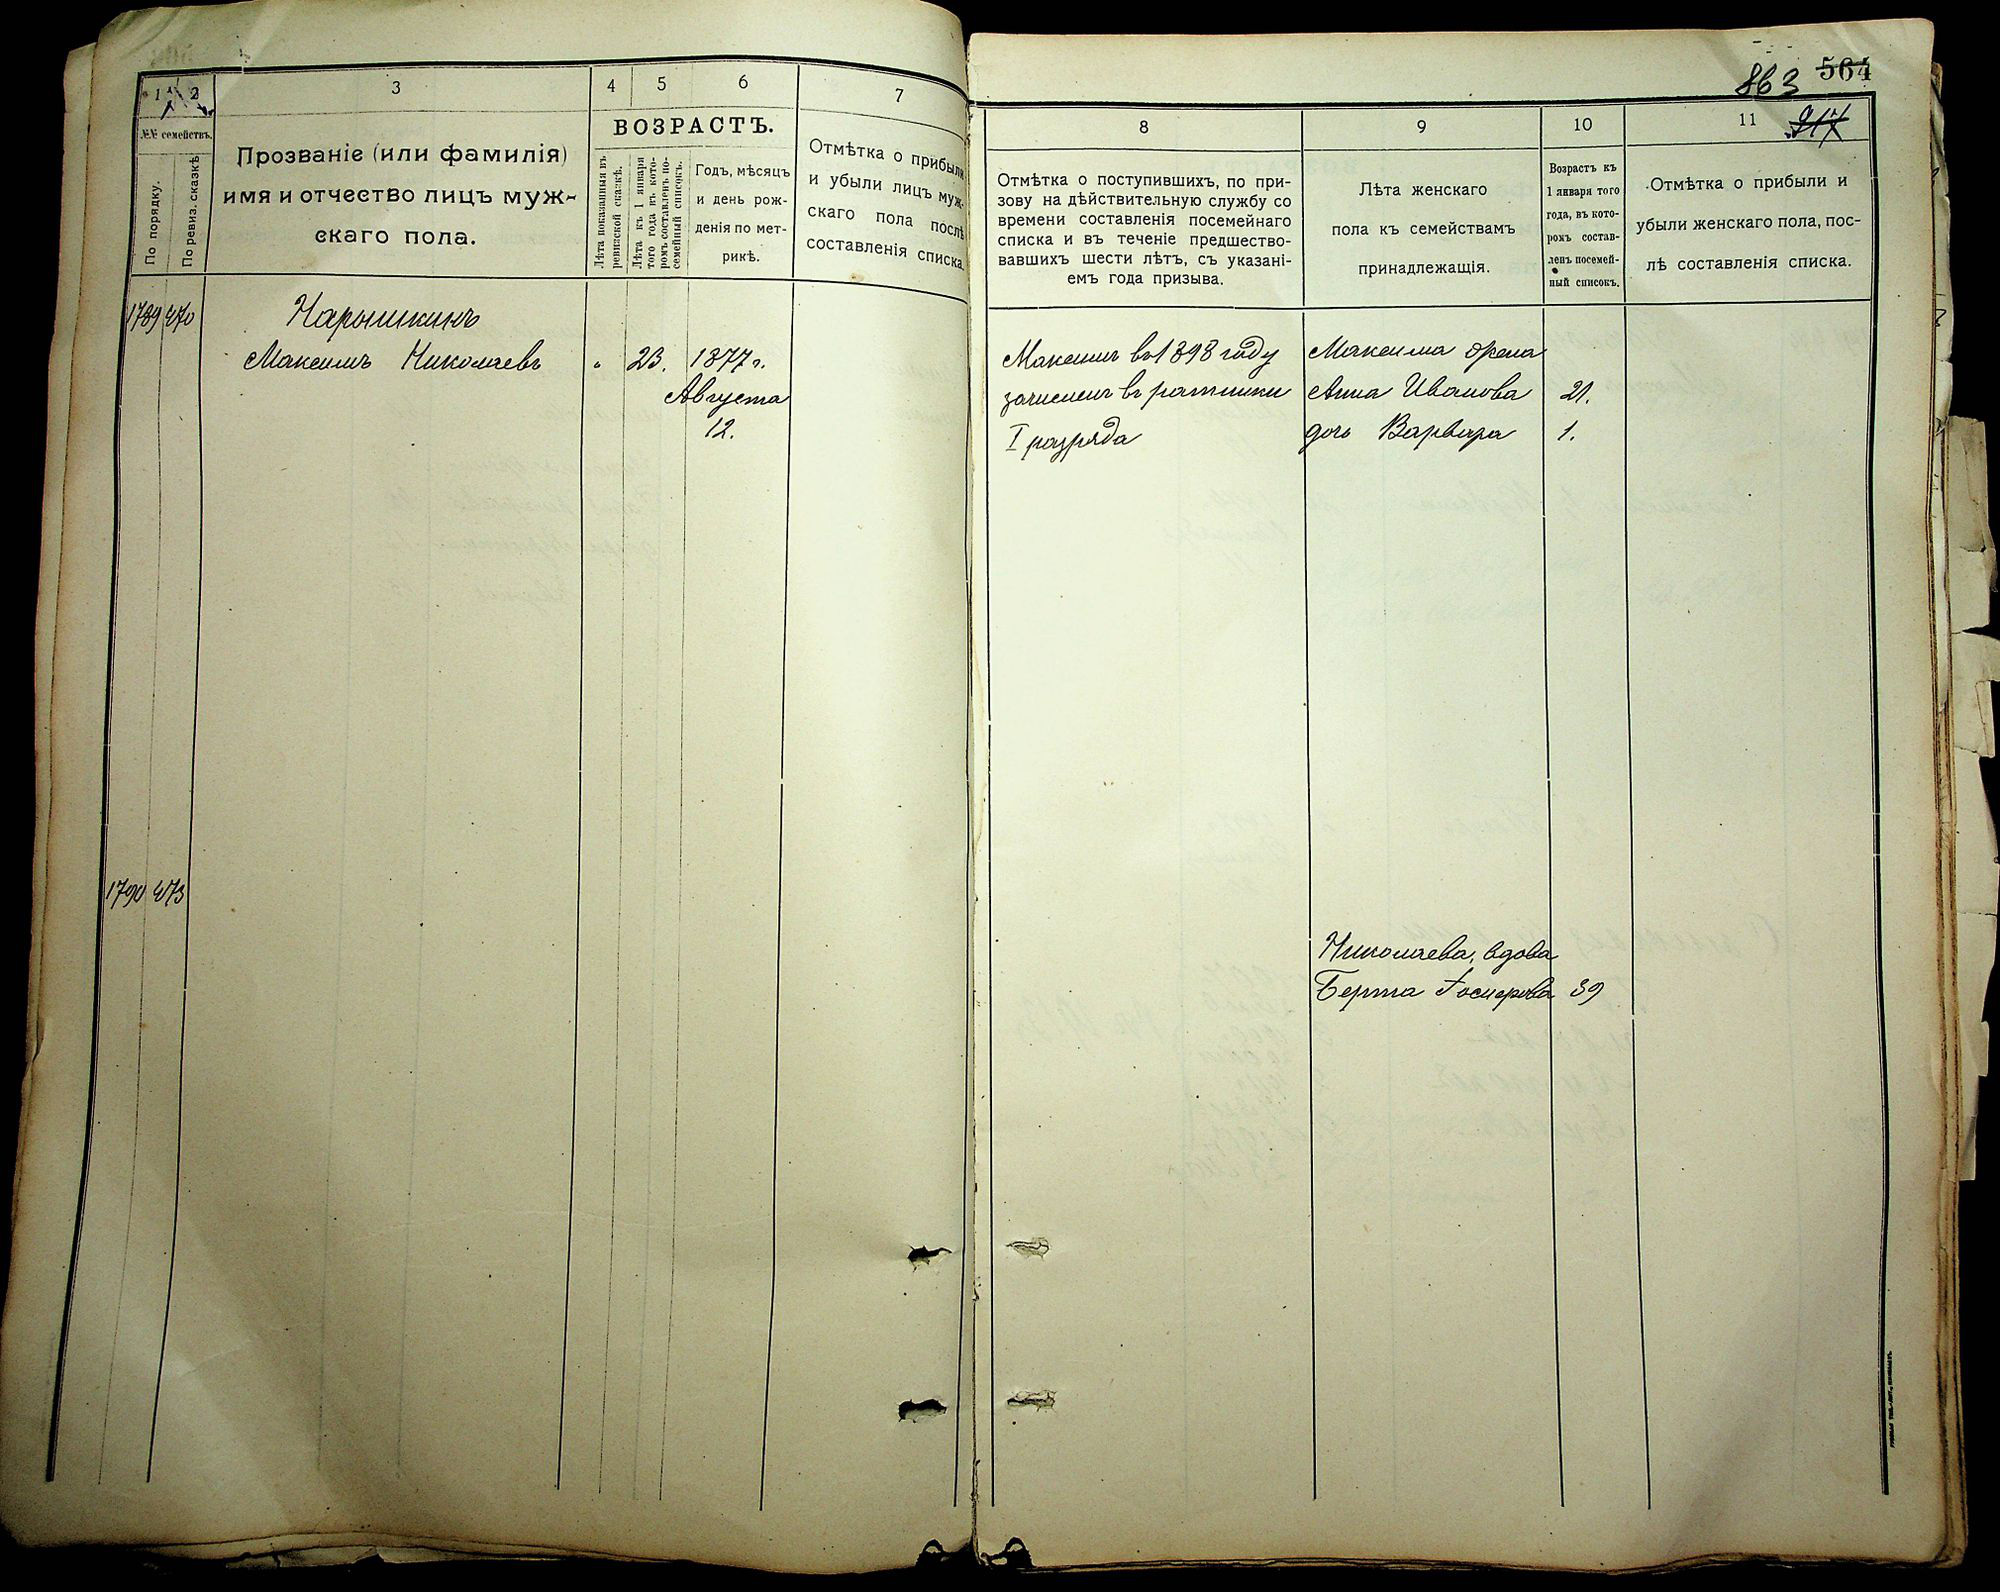 863 564
917
1 2 3 4 5 6 7
№№ семействъ.
По порядку.
По ревиз. сказкѣ
Прозваніе (или фамилія)
имя и отчество лицъ муж-
скаго пола.
ВОЗРАСТЪ.
Лѣта показанныя въ
ревизской сказкѣ.
Лѣта къ 1 января
того года въ кото-
ромъ составленъ по-
семейный списокъ.
Годъ, мѣсяцъ
и день рож-
денія по мет-
рикѣ.
Отмѣтка о прибыли
и убыли лицъ муж-
скаго пола послѣ
составленія списка.
1789 470 Нарышкинъ
Максимъ Николаевъ " 23. 1877 г.
Августа
12.
1790 473
8 9 10 11
Отмѣтка о поступившихъ, по при-
зову на дѣйствительную службу со
времени составленія посемейнаго
списка и въ теченіе предшество-
вавшихъ шести лѣтъ, съ указані-
емъ года призыва.
Лѣта женскаго
пола къ семействамъ
принадлежащія.
Возрастъ къ
1 января того
года, въ кото-
ромъ состав-
ленъ посемей-
ный списокъ.
Отмѣтка о прибыли и
убыли женскаго пола, пос-
лѣ составленія списка.
Максимъ въ 1898 году
зачисленъ въ ратники
I разряда
Максима жена
Анна Иванова 21.
дочь Варвара 1.
Николаева, вдова
Берта 39